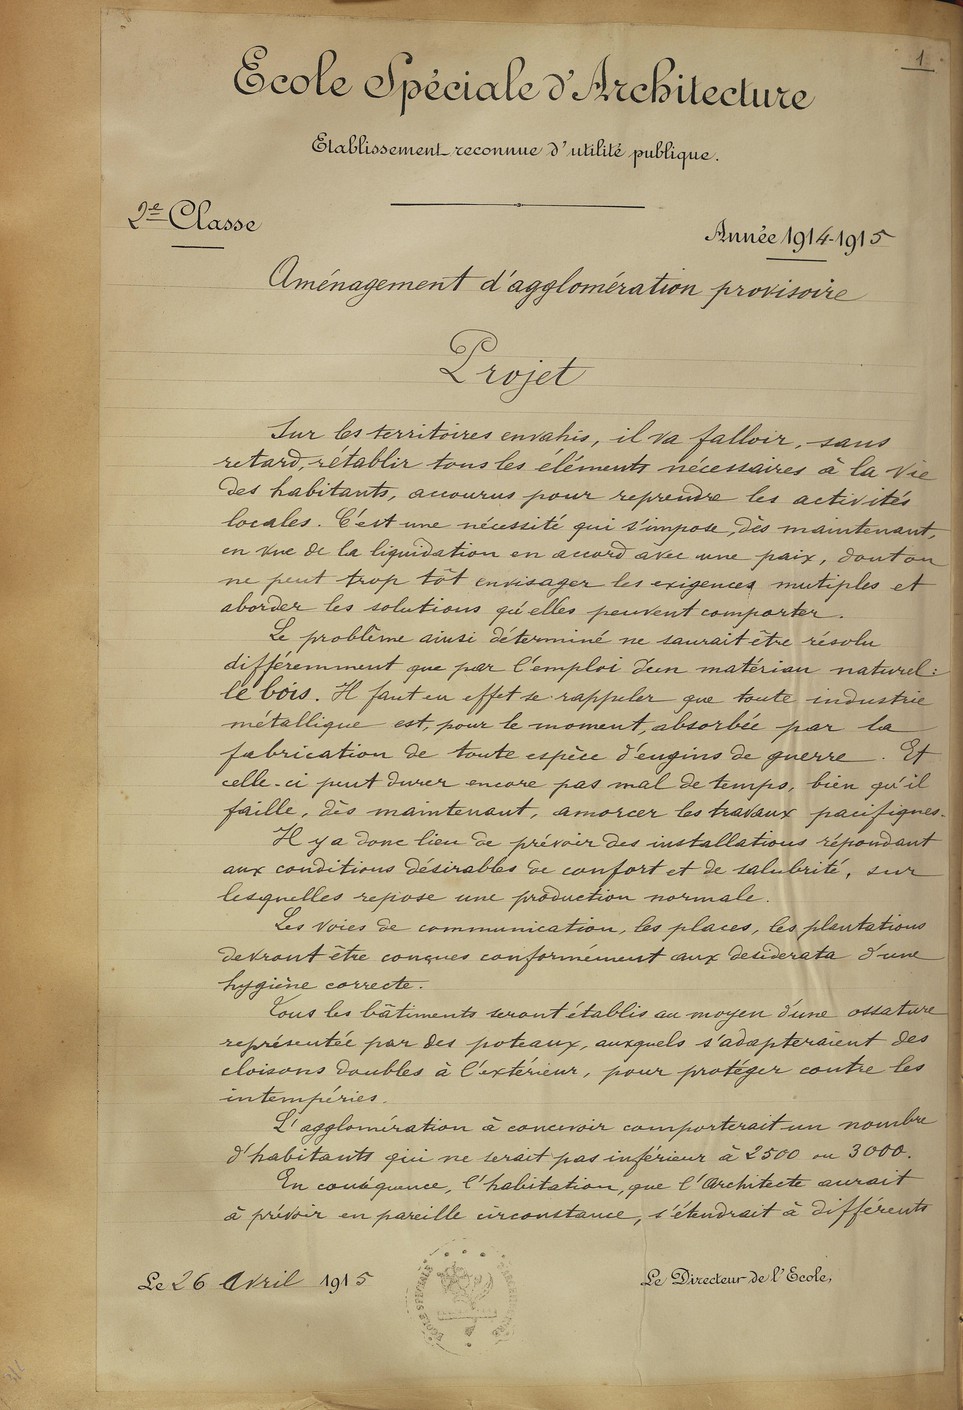 1
Ecole Spéciale d'Architecture
Etablissement reconnue d'utilité publique.
2e Classe
Année 1914-1915
Aménagement d'agglomération provisoire
Projet
Sur les territoires envahis, il va falloir, sans
retard, rétablir tous les éléments nécessaires à la vie
des habitants, accourus pour reprendre les activités
locales. C'est une nécessité qui s'impose, dès maintenant,
en vue de la liquidation en accord avec une paix, dont on
ne peut trop tôt envisager les exigences mutiples et
aborder les solutions qu'elles peuvent comporter.
Le problème ainsi déterminé ne saurait être résolu
différemment que par l'emploi d'un matériau naturel :
le bois. Il faut en effet se rappeler que toute industrie
métallique est, pour le moment, absorbée par la
fabrication de toute espèce d'engins de guerre. Et
celle-ci peut durer encore pas mal de temps, bien qu'il
faille, dès maintenant, amorcer les travaux pacifiques.
Il y a donc lieu de prévoir des installations répondant
aux conditions désirables de confort et de salubrité, sur
lesquelles repose une production normale.
Les voies de communication, les places, les plantations
devront être conçues conformément aux desiderata d'une
hygiène correcte.
Tous les bâtiments seront établis au moyen d'une ossature
représentée par des poteaux, auxquels s'adapteraient des
cloisons doubles à l'extérieur, pour protéger contre les
intempéries.
L'agglomération à concevoir comporterait un nombre
d'habitants qui ne serait pas inférieur à 2500 ou 3000.
En conséquence, l'habitation, que l'Architecte aurait
à prévoir en pareille circonstance, s'étendrait à différents
Le 26 Avril 1915
Le Directeur de l'Ecole,
ECOLE SPECIALE D'ARCHITECTURE